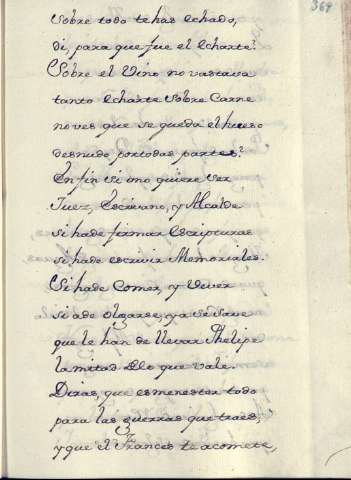 369
Sobre todo te has echado,
di, para que fue el echarte?
Sobre el Vino no vastava
tanto echarte sobre Carne
no ves que se queda el hueso
desnudo portodas partes?
En fin si uno quiere ser
Juez, Escrivano, y Alcalde
si hade firmar Escripturas
si hade escrivir Memoriales.
Si hade Comer, y Vever
si a de olgarse, ya se save
que le han de llevar Phelipe
la mitad Dlo que vale.
Diras, que es menester todo
para las guerras que traes,
y que el Frances te acomete,